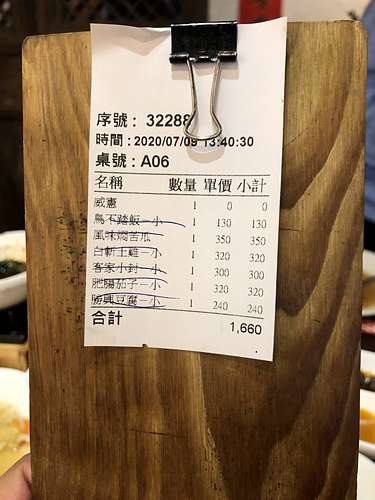 序號: 32288
時間: 2020/07/09 13:40:30
桌號: A06
名稱 數量 單價 小計
威憲 1 0 0
鳥不踏飯-小 1 130 130
風味燜苦瓜 1 350 350
白斬土雞-小 1 320 320
客家小封-小 1 300 300
肥腸茄子-小 1 320 320
勝興豆腐-小 1 240 240
合計 1,660